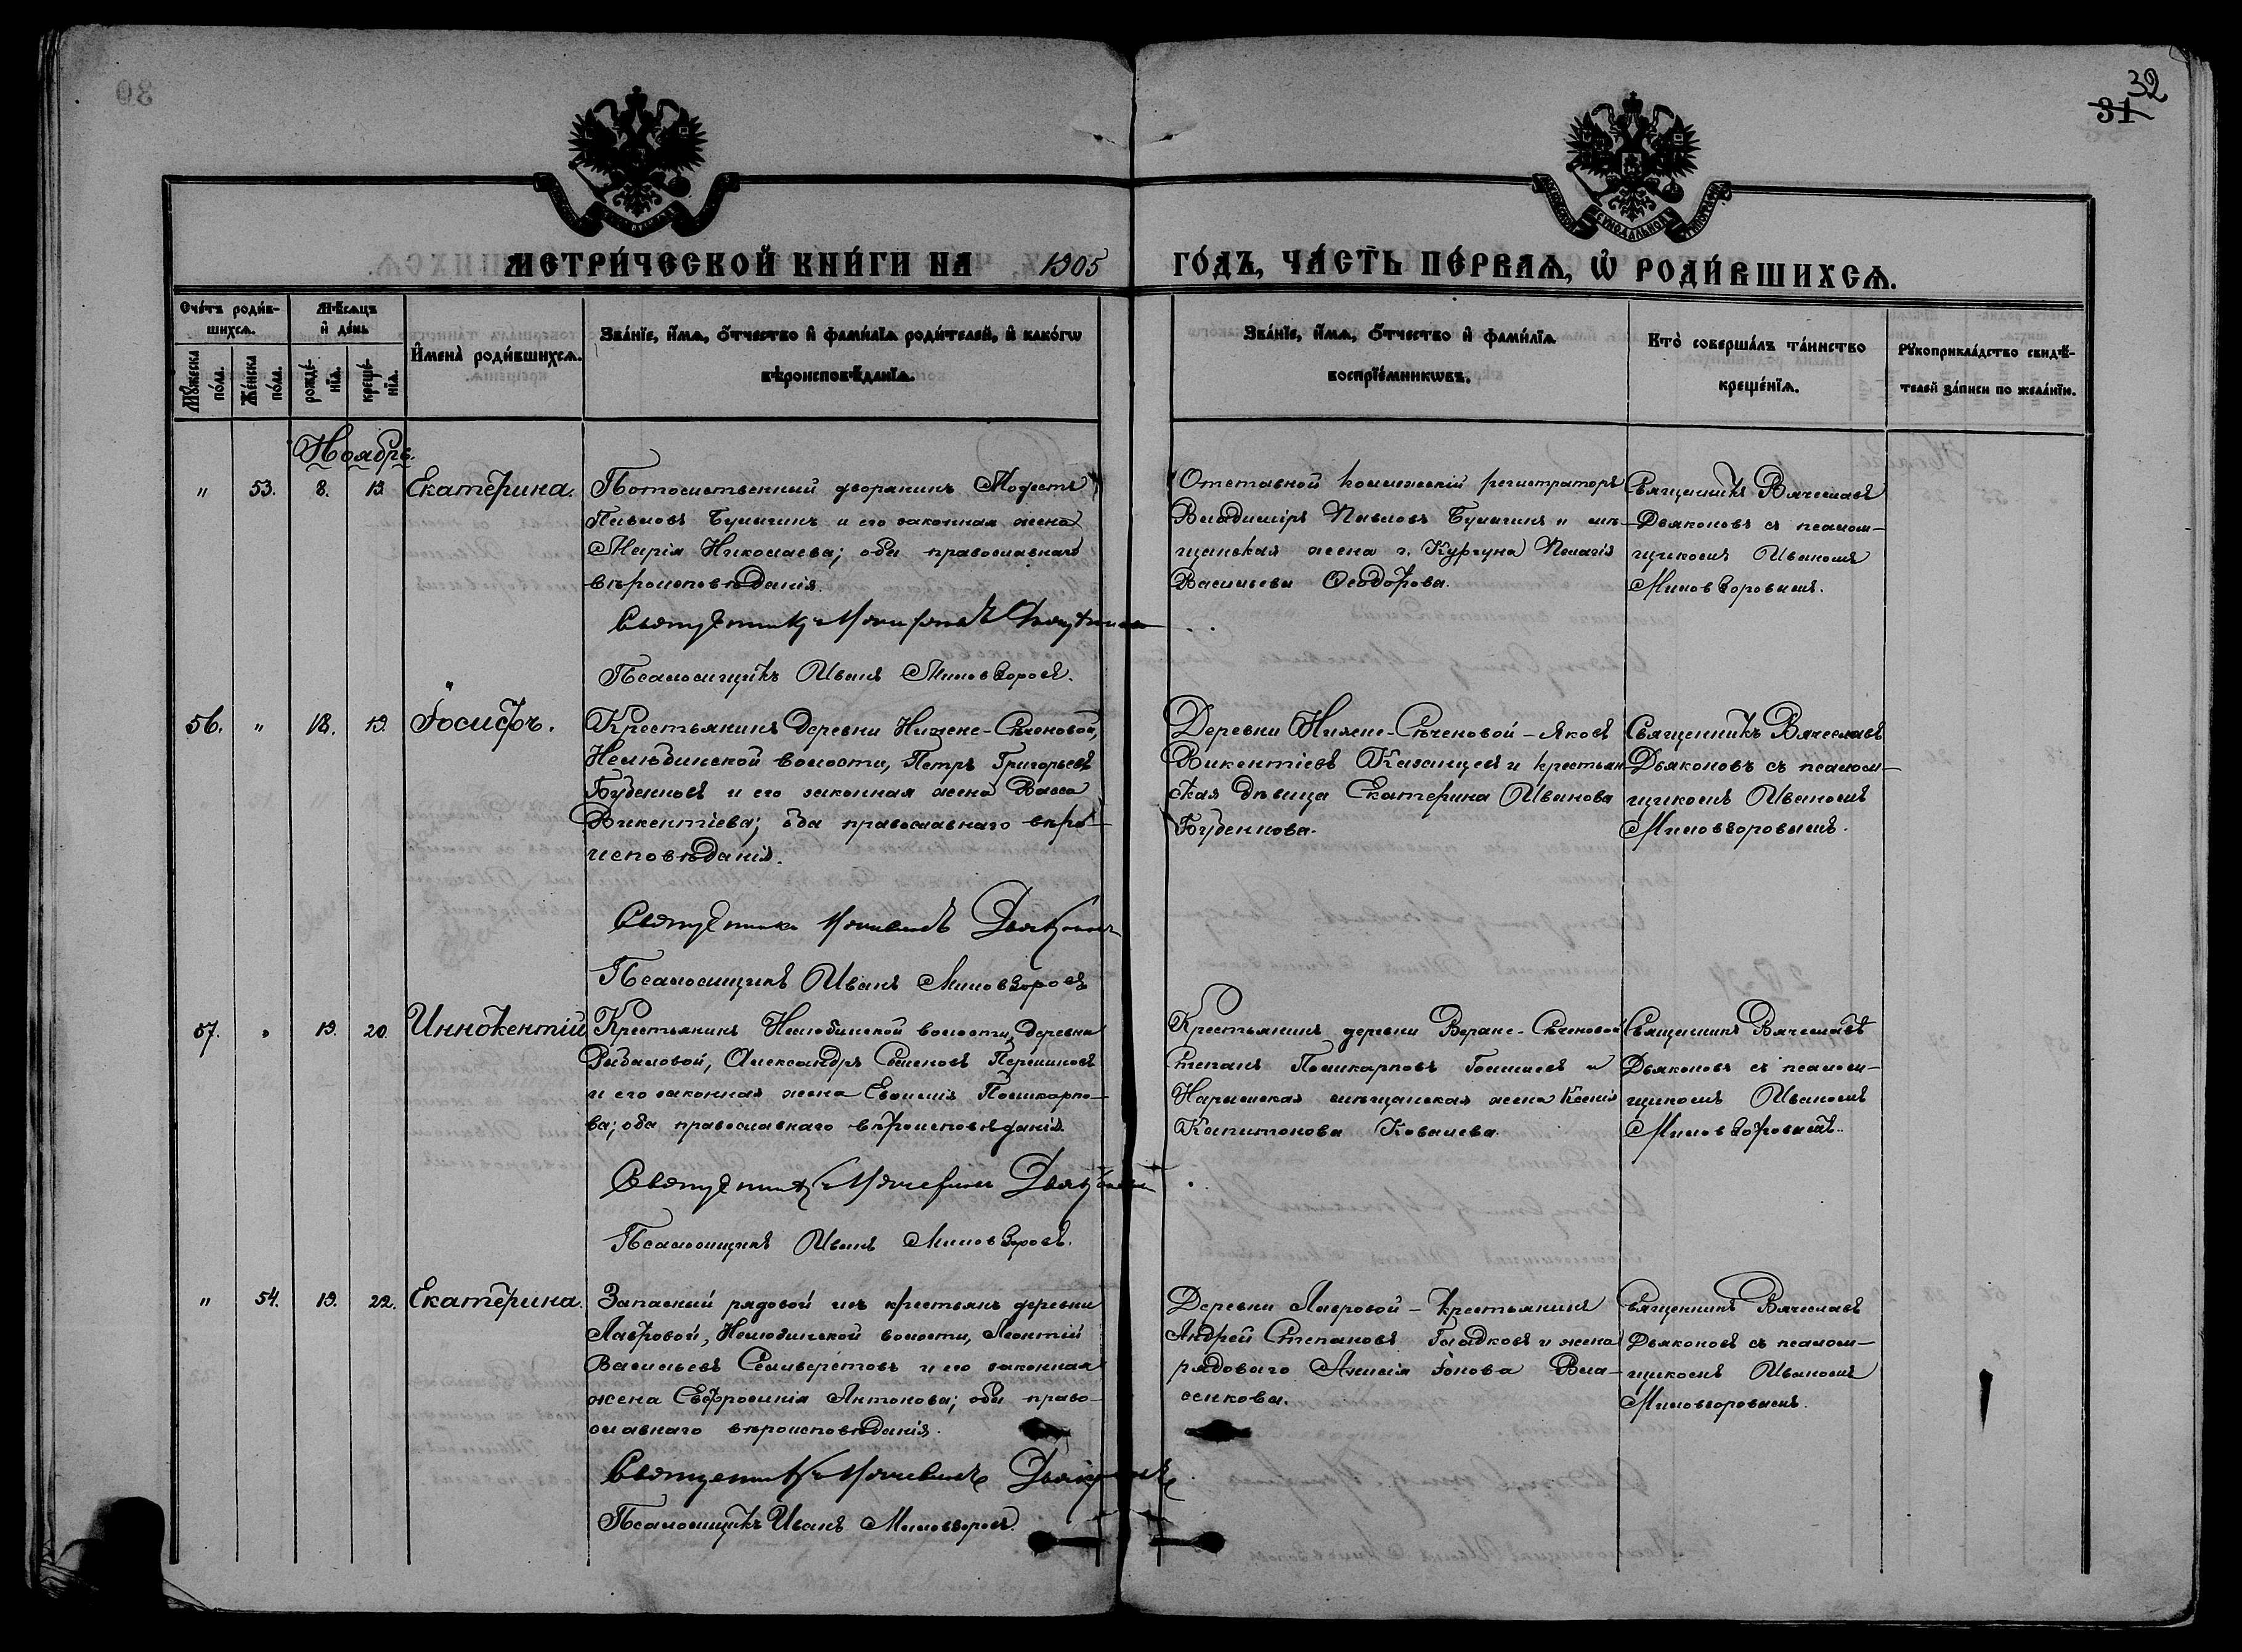 32
31
МЕТРИ́ЧЕСКОЙ КНИ́ГИ НА 1905 ГО́ДЪ, ЧА́СТЬ ПЕ́РВАѦ, Ѡ РОДИ́ВШИХСѦ.
Сче́тъ роди́в-
шихсѧ.
Мꙋ́жеска
по́ла.
Же́нска
по́ла.
Мѣ́сѧцъ
и҆ де́нь
рожде́-
нїѧ.
креще́-
нїѧ.
И҆мена̀ роди́вшихсѧ.
Зва́нїе, и҆́мѧ, ѻ҆́тчество и҆ фами́лїѧ роди́телей, и҆ како́гѡ
вѣроисповѣ́данїѧ.
Зва́нїе, и҆́мѧ, ѻ҆́тчество и҆ фами́лїѧ
воспрїе́мникѡвъ.
Кто̀ соверша́лъ та́инство
креще́нїѧ.
Рꙋкоприкла́дство свидѣ́-
телей за́писи по жела́нїю.
Ноябрь.
" 53. 8. 13 Екатерина.
Потомственный дворянинъ Модестъ
Павловъ Булыгинъ и его законная жена
Марія Николаева; оба православнаго
вѣроисповѣданія.
Священникъ
Псаломщикъ Иванъ Миловзоровъ.
Отставной коллежскій регистраторъ
Владимiръ Павловъ Булыгинъ и мѣ-
щанская жена г. Кургана Пелагія
Васильева Ѳеодорова.
Священникъ Вячеславъ
Дьяконовъ съ псалом-
щикомъ Иваномъ
Миловзоровымъ.
56. " 18. 19. Іосифъ.
Крестьянинъ деревни Нижне-Сѣченовой,
Нелюбинской волости, Петръ Григорьевъ
Буденновъ и его законная жена Васса
Викентіева; оба православнаго вѣро-
исповѣданія.
Священникъ Вячеславъ Дьяконовъ
Псаломщикъ Иванъ Миловзоровъ
Деревни Нижне-Сѣченовой - Яковъ
Викентіевъ Казанцевъ и крестьян-
ская дѣвица Екатерина Иванова
Буденнова.
Священникъ Вячеславъ
Дьяконовъ съ псалом-
щикомъ Иваномъ
Миловзоровымъ.
57. " 19. 20. Иннокентій
Крестьянинъ Нелюбинской волости, деревни
Рыбаловой, Александръ Семеновъ Перминовъ
и его законная жена Евѳимія Поликарпо-
ва; оба православнаго вѣроисповѣданія.
Священникъ Дьяконовъ
Псаломщикъ Иванъ Миловзоровъ.
Крестьянинъ деревни Верхне-Сѣченовой
Степанъ Поликарповъ и
Нарымская мѣщанская жена Ксенія
Капитонова Ковалева.
Священникъ Вячеславъ
Дьяконовъ съ псалом-
щикомъ Иваномъ
Миловзоровымъ.
" 54. 19. 22. Екатерина.
Запасный рядовой изъ крестьянъ деревни
Лавровой, Нелюбинской волости, Леонтій
Васильевъ Селиверстовъ и его законная
жена Евфросинія Антонова; оба право-
славнаго вѣроисповѣданія.
Священникъ Вячеславъ Дьяконовъ
Псаломщикъ Иванъ Миловзоровъ.
Деревни Лавровой - крестьянинъ
Андрей Степановъ Гладковъ и жена
рядоваго Анисія Іонова Вла-
сенкова.
Священникъ Вячеславъ
Дьяконовъ съ псалом-
щикомъ Иваномъ
Миловзоровымъ.